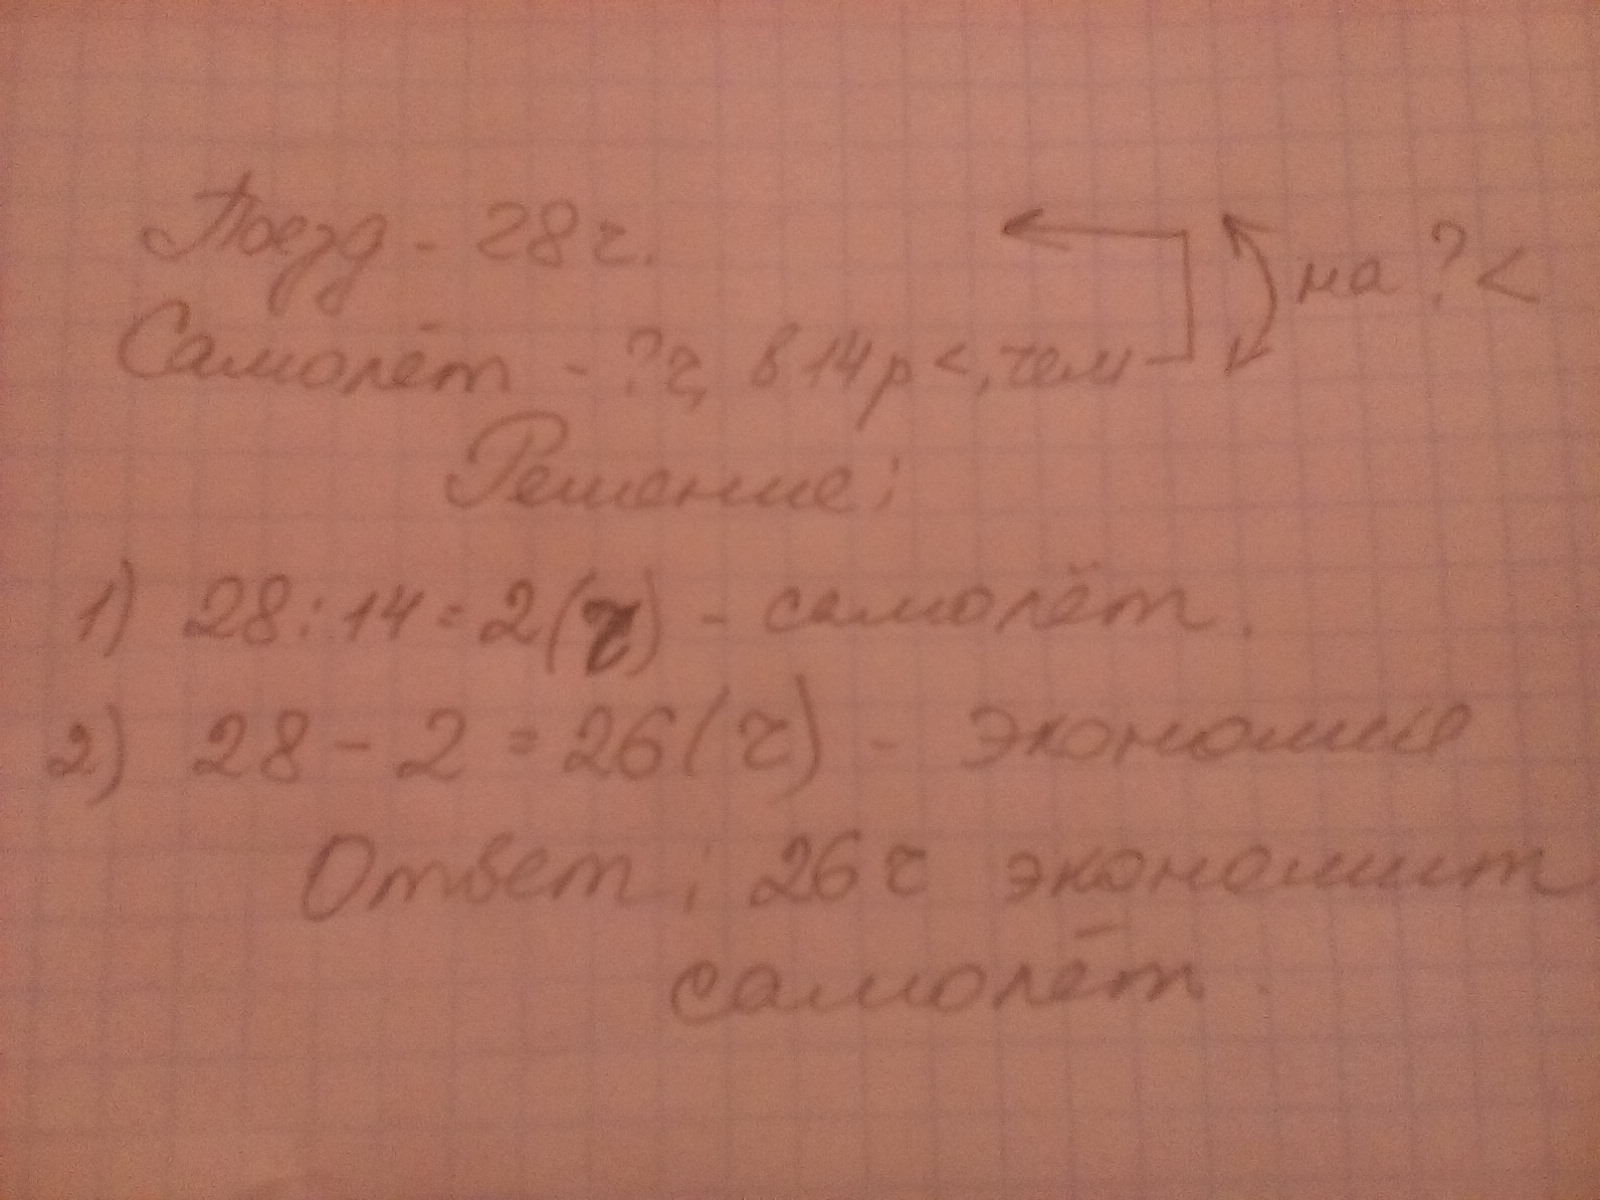 Поезд - 28 ч.
на ? <
Самолёт - ? ч, в 14 р <, чем
Решение:
1) 28 : 14 = 2 (ч) - самолёт.
2) 28 - 2 = 26 (ч) - экономие
Ответ: 26 ч экономит
самолёт.